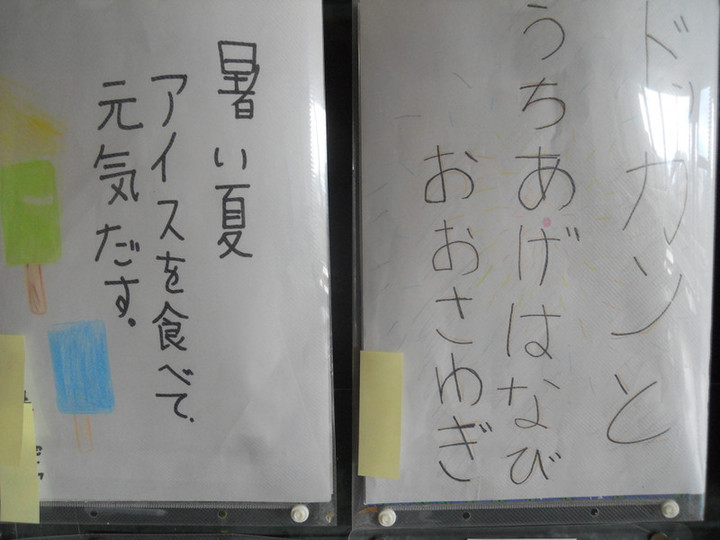 ドッカンと
うちあげはなび
おおさわぎ
暑い夏
アイスを食べて、
元気だす。